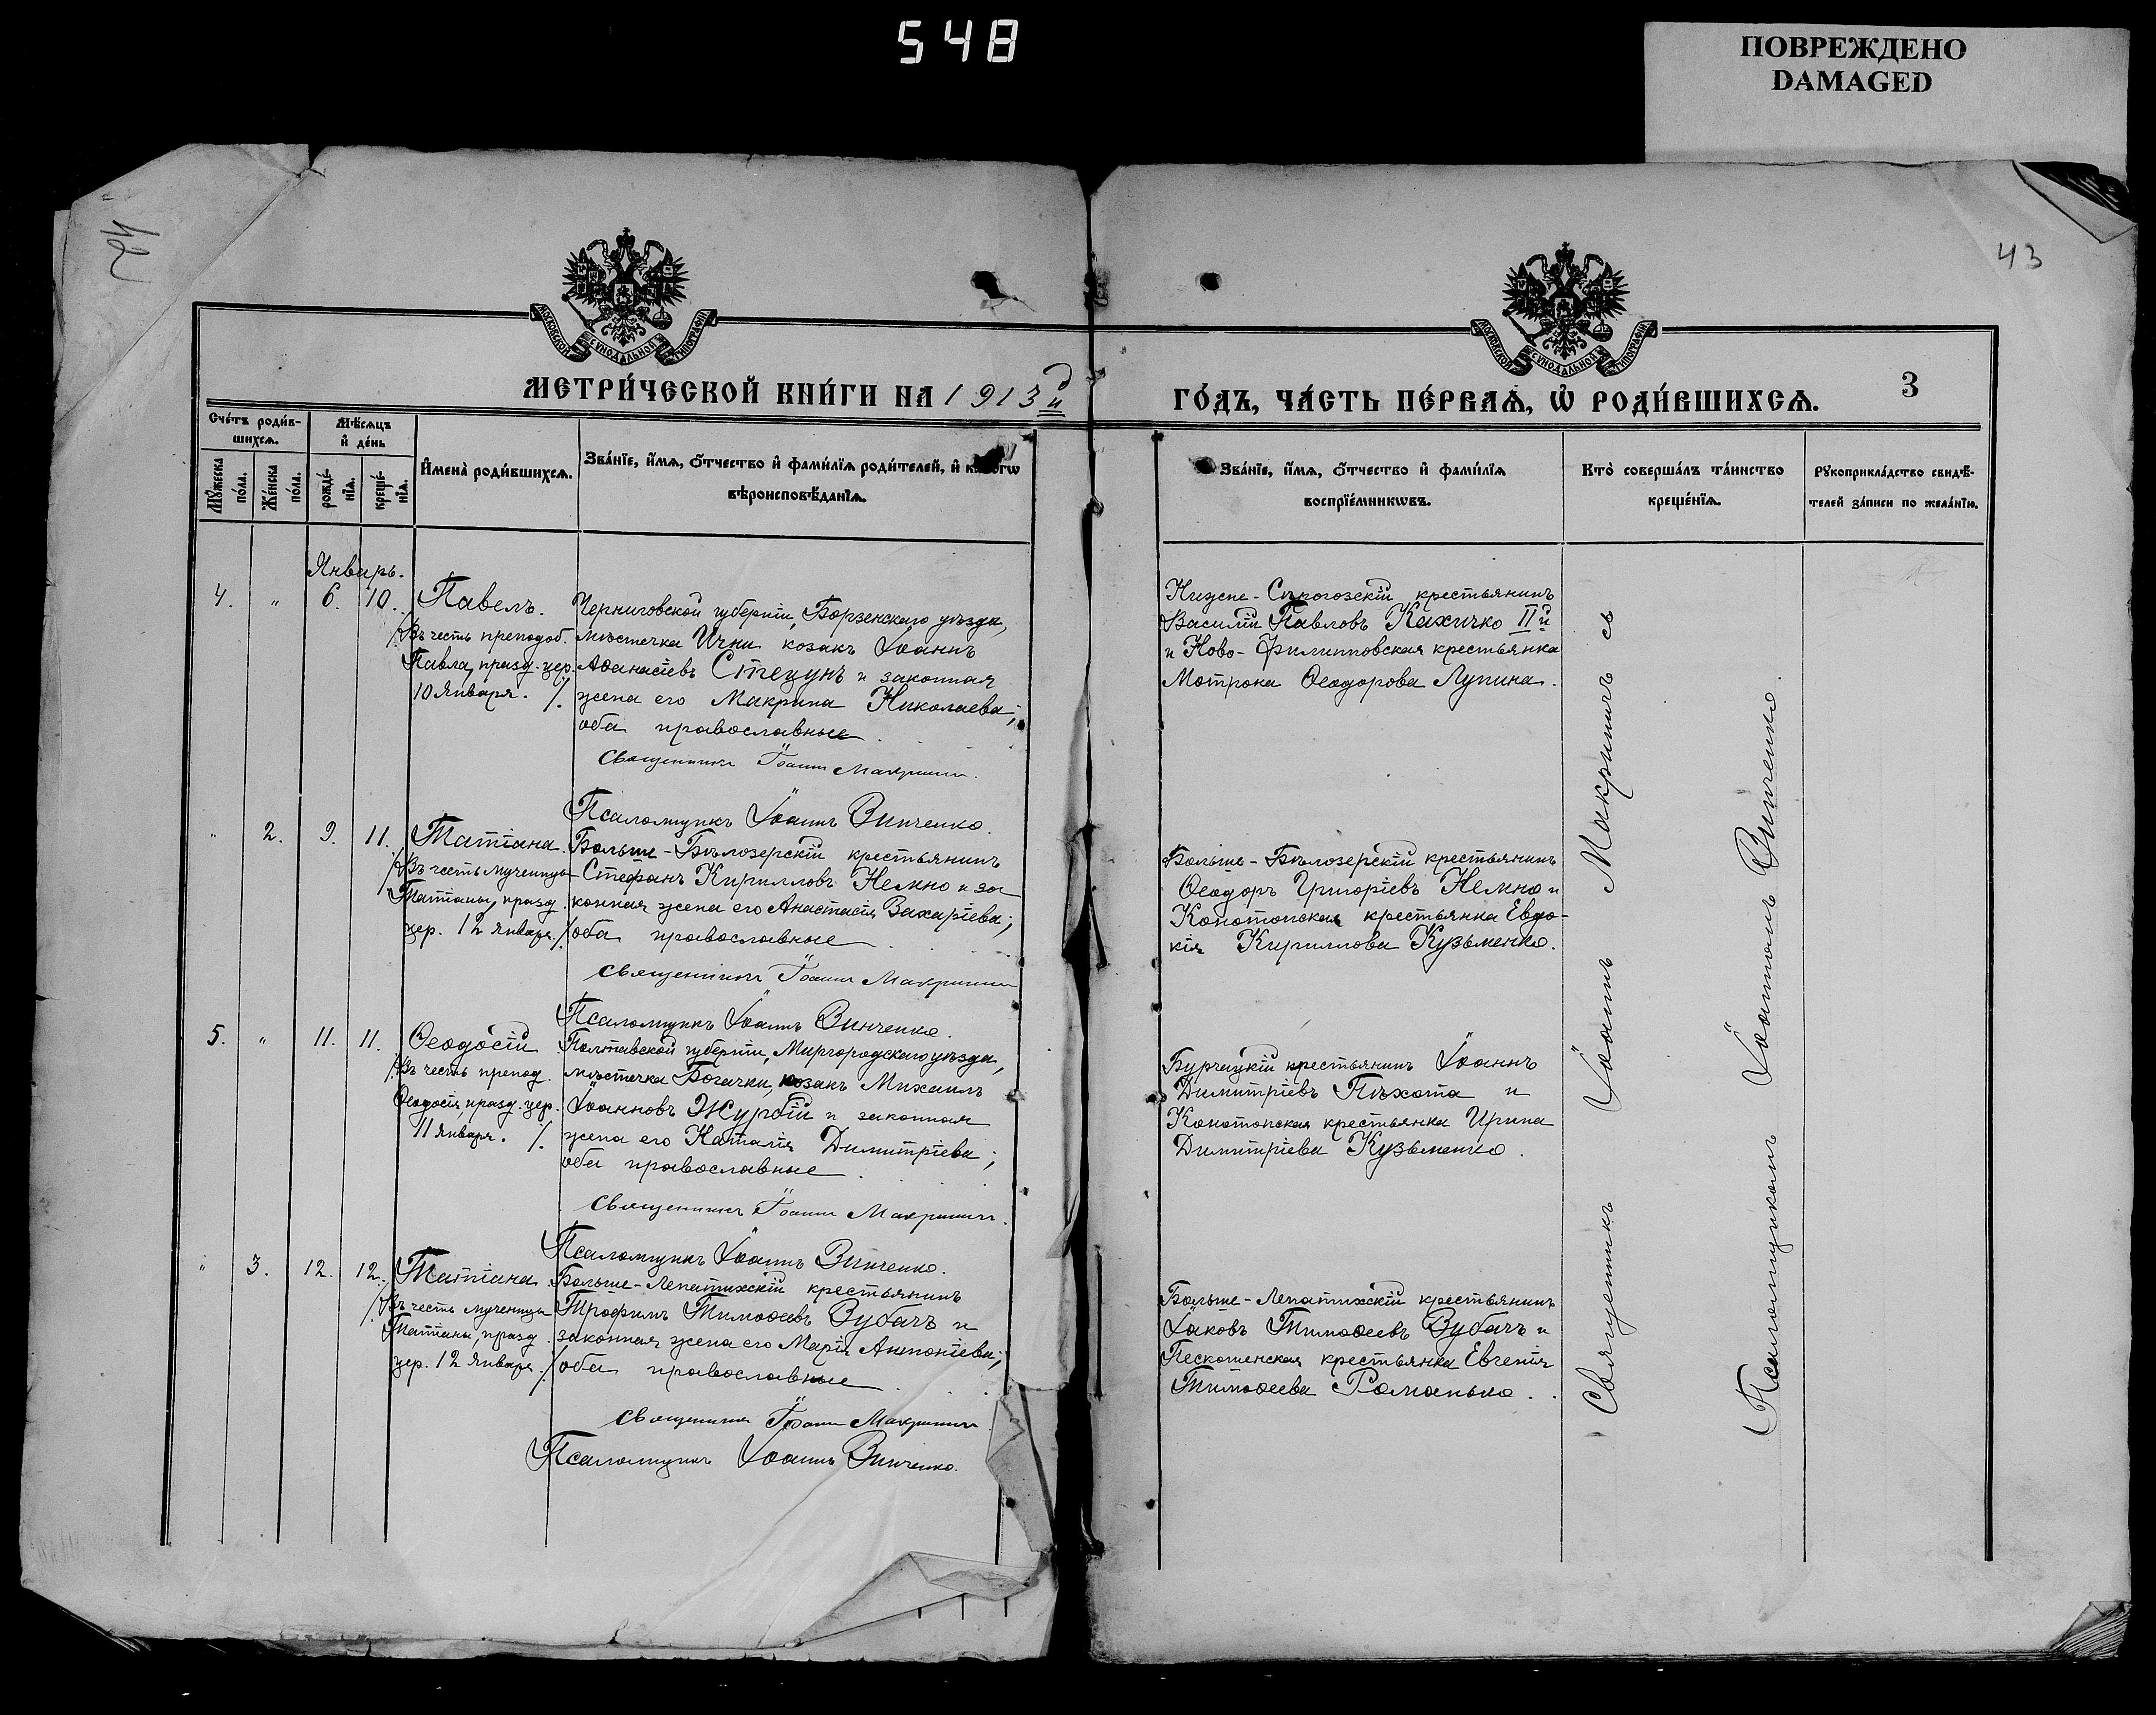 548
ПОВРЕЖДЕНО
DAMAGED
42
43
МОСКОВСКОЙ СѴНОДАЛЬНОЙ ТИПОГРАФІИ
МОСКОВСКОЙ СѴНОДАЛЬНОЙ ТИПОГРАФІИ
МЕТРИ́ЧЕСКОЙ КНИ́ГИ НА 1913й
ГО́ДЪ, ЧА́СТЬ ПЕ́РВАѦ, Ѡ РОДИ́ВШИХСѦ.
3
Сче́тъ роди́в-
шихсѧ.
Мѣ́сѧцъ
и҆ де́нь
Мꙋ́жеска
по́ла.
Же́нска
по́ла.
рожде́-
нїѧ.
креще́-
нїѧ.
И҆мена̀ роди́вшихсѧ.
Зва́нїе, и҆́мѧ, ѻ҆́тчество и҆ фамѝлїѧ роди́телей, и҆
вѣроисповѣ́данїѧ.
Зва́нїе, и҆́мѧ, ѻ҆́тчество и҆ фамѝлїѧ
воспрїе́мникѡвъ.
Кто̀ соверша́лъ та́инство
креще́нїѧ.
Рꙋкоприкла́дство свидѣ́-
телей за́писи по жела́нїю.
Январь.
4. " 6. 10. Павелъ.
/Въ честь преподоб.
Павла, празд. цер.
10 Января. /.
Черниговской губерніи, Борзенскаго уѣзда,
мѣстечка Ични козакъ Іоаннъ
Аѳанасіевъ Стецунъ и законная
жена его Макрина Николаева;
оба православные
Священникъ Іоаннъ Макриничъ.
Псаломщикъ Іоаннъ Винченко.
Нижне-Сирогозскій крестьянинъ
Василій Павловъ Кахичко IIй
и Ново-Филипповская крестьянка
Мотрона Ѳеодорова Лупина.
" 2. 9. 11. Татіана.
/Въ честь мученицы
Татіаны, празд.
цер. 12 Января./
Больше-Бѣлозерскій крестьянинъ
Стефанъ Кирилловъ Немно и за
конная жена его Анастасія Захаріева;
оба православные
Священникъ Іоаннъ Макриничъ
Псаломщикъ Іоаннъ Винченко.
Больше-Бѣлозерскій крестьянинъ
Ѳеодоръ Григоріевъ Немно и
Конотопская крестьянка Евдо-
кія Кириллова Кузьменко.
5. " 11. 11. Ѳеодосій
/Въ честь препод.
Ѳеодосія, празд. цер.
11 Января. /.
Полтавской губерніи, Миргородскаго уѣзда,
мѣстечка Богачки, козакъ Михаилъ
Іоанновъ Журбій и законная
жена его Наталія Димитріева;
оба православные
Священникъ Іоаннъ Макриничъ.
Псаломщикъ Іоаннъ Винченко.
Бурчацкій крестьянинъ Іоаннъ
Димитріевъ Пѣхота и
Конотопская крестьянка Ирина
Димитріева Кузьменко.
" 3. 12. 12. Татіана.
/Въ честь мученицы
Татіаны, празд.
цер. 12 Января./
Больше-Лепатихскій крестьянинъ
Трофимъ Тимоѳеевъ Зубачъ и
законная жена его Марія Антоніева;
оба православные
Священникъ Іоаннъ Макриничъ
Псаломщикъ Іоаннъ Винченко.
Больше-Лепатихскій крестьянинъ
Іаковъ Тимоѳеевъ Зубачъ и
Пескошенская крестьянка Евгенія
Тимоѳеева Романько.
Священникъ Іоаннъ Макриничъ съ
Псаломщикомъ Іоанномъ Винченко.